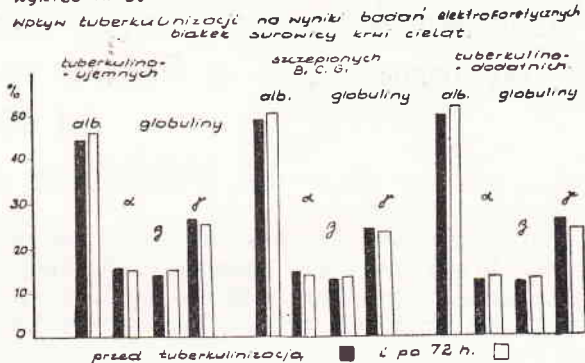 Wpływ tuberkulinizacji na wyniki badań elektroforetycznych
białek surowicy krwi cieląt
tuberkulino-
-ujemnych
szczepionych
B. C. G.
tuberkulino-
-dodatnich
%
alb. globuliny alb. globuliny alb. globuliny
50
40
30
20
10
α β γ α β γ α β γ
przed tuberkulinizacją i po 72 h.